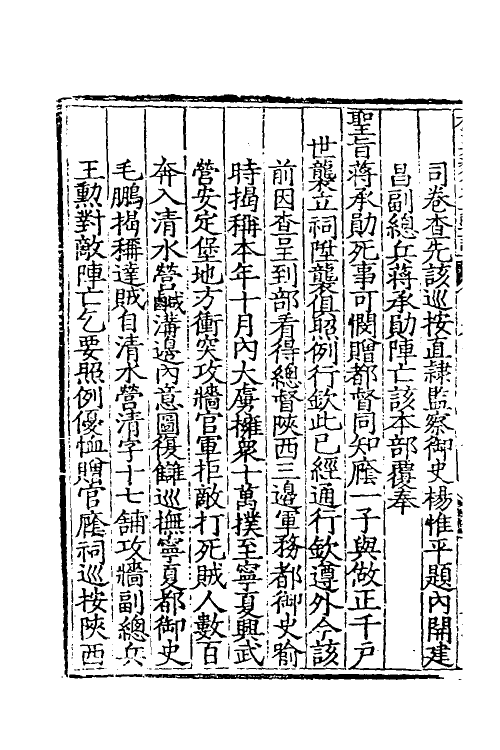 司卷查先該巡按直隷監察御史楊惟平題內開建
昌副總兵蔣承勛陣亡該本部覆奉
聖旨蔣承勛死事可憫贈都督同知廕一子與做正千戶
世襲立祠陞襲值照例行欽此已經通行欽遵外今該
前因查呈到部看得總督陜西三邊軍務都御史喻
時揭稱本年十月內大虜擁衆十萬撲至寧夏興武
營安定堡地方衝突攻牆官軍拒敵打死賊人數百
奔入清水營鹹溝邊內意圖復讎巡撫寧夏都御史
毛鵬揭稱達賊自清水營清字十七舖攻牆副總兵
王勲對敵陣亡乞要照例優恤贈官廕祠巡按陜西